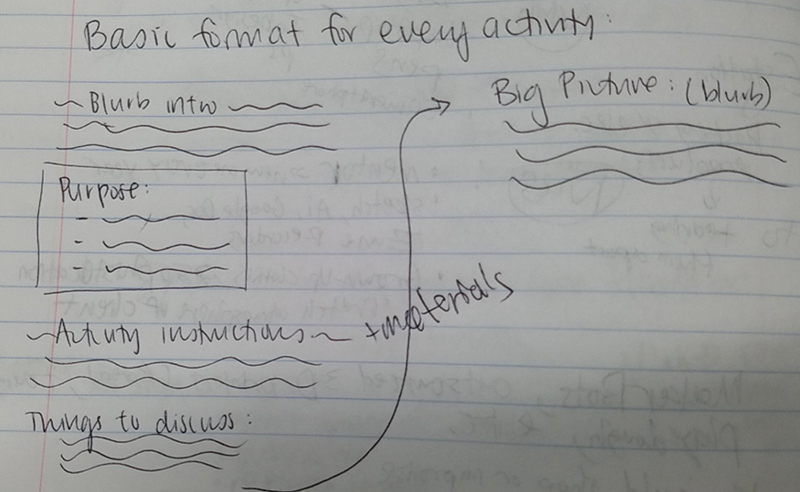 Basic format for every activity:
Blurb intro
Purpose:
-
-
-
Activity instructions + materials
Things to discuss:
Big Picture: (blurb)